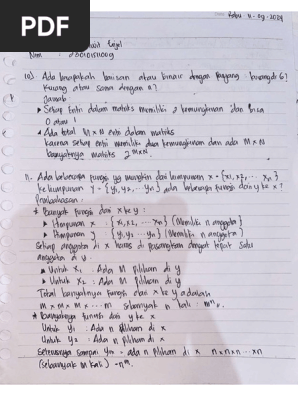 PDF
Rabu 11-09-2024
Nim :
10) Ada berapakah barisan atau binair dengan panjang kurang dr 6?
kurang atau sama dengan n?
Jawab
▸ Setiap Entri dalam matriks memiliki 2 kemungkinan dan bisa
0 atau 1
▸ Ada total M×N entri dalam matriks
karena setiap entri memiliki dua kemungkinan dan ada M×N
banyaknya matriks 2^M×N
11. Ada beberapa fungsi yg mungkin dari himpunan x = {x1, x2, ... xn}
ke himpunan y = {y1, y2, ... ym}, ada berapa fungsi dari y ke x?
Pembahasan :
* Banyak fungsi dari x ke y :
▸ Himpunan x : {x1, x2, ... xn} (Memiliki n anggota)
▸ Himpunan y : {y1, y2, ... ym} (Memiliki m anggota)
Setiap anggota di x harus di pasangkan dengan tepat satu
anggota di y.
▸ Untuk x1 : Ada M pilihan di y
▸ Untuk x2 : Ada M pilihan di y
Total banyaknya fungsi dari x ke y adalah
M × M × M × ... M sebanyak n kali : m^n.
* Banyaknya fungsi dari y ke x
Untuk y1 : Ada n pilihan di x
Untuk y2 : Ada n pilihan di x
Seterusnya sampai ym = ada n pilihan di x n×n×n ... ×n
(sebanyak M kali) = n^m.